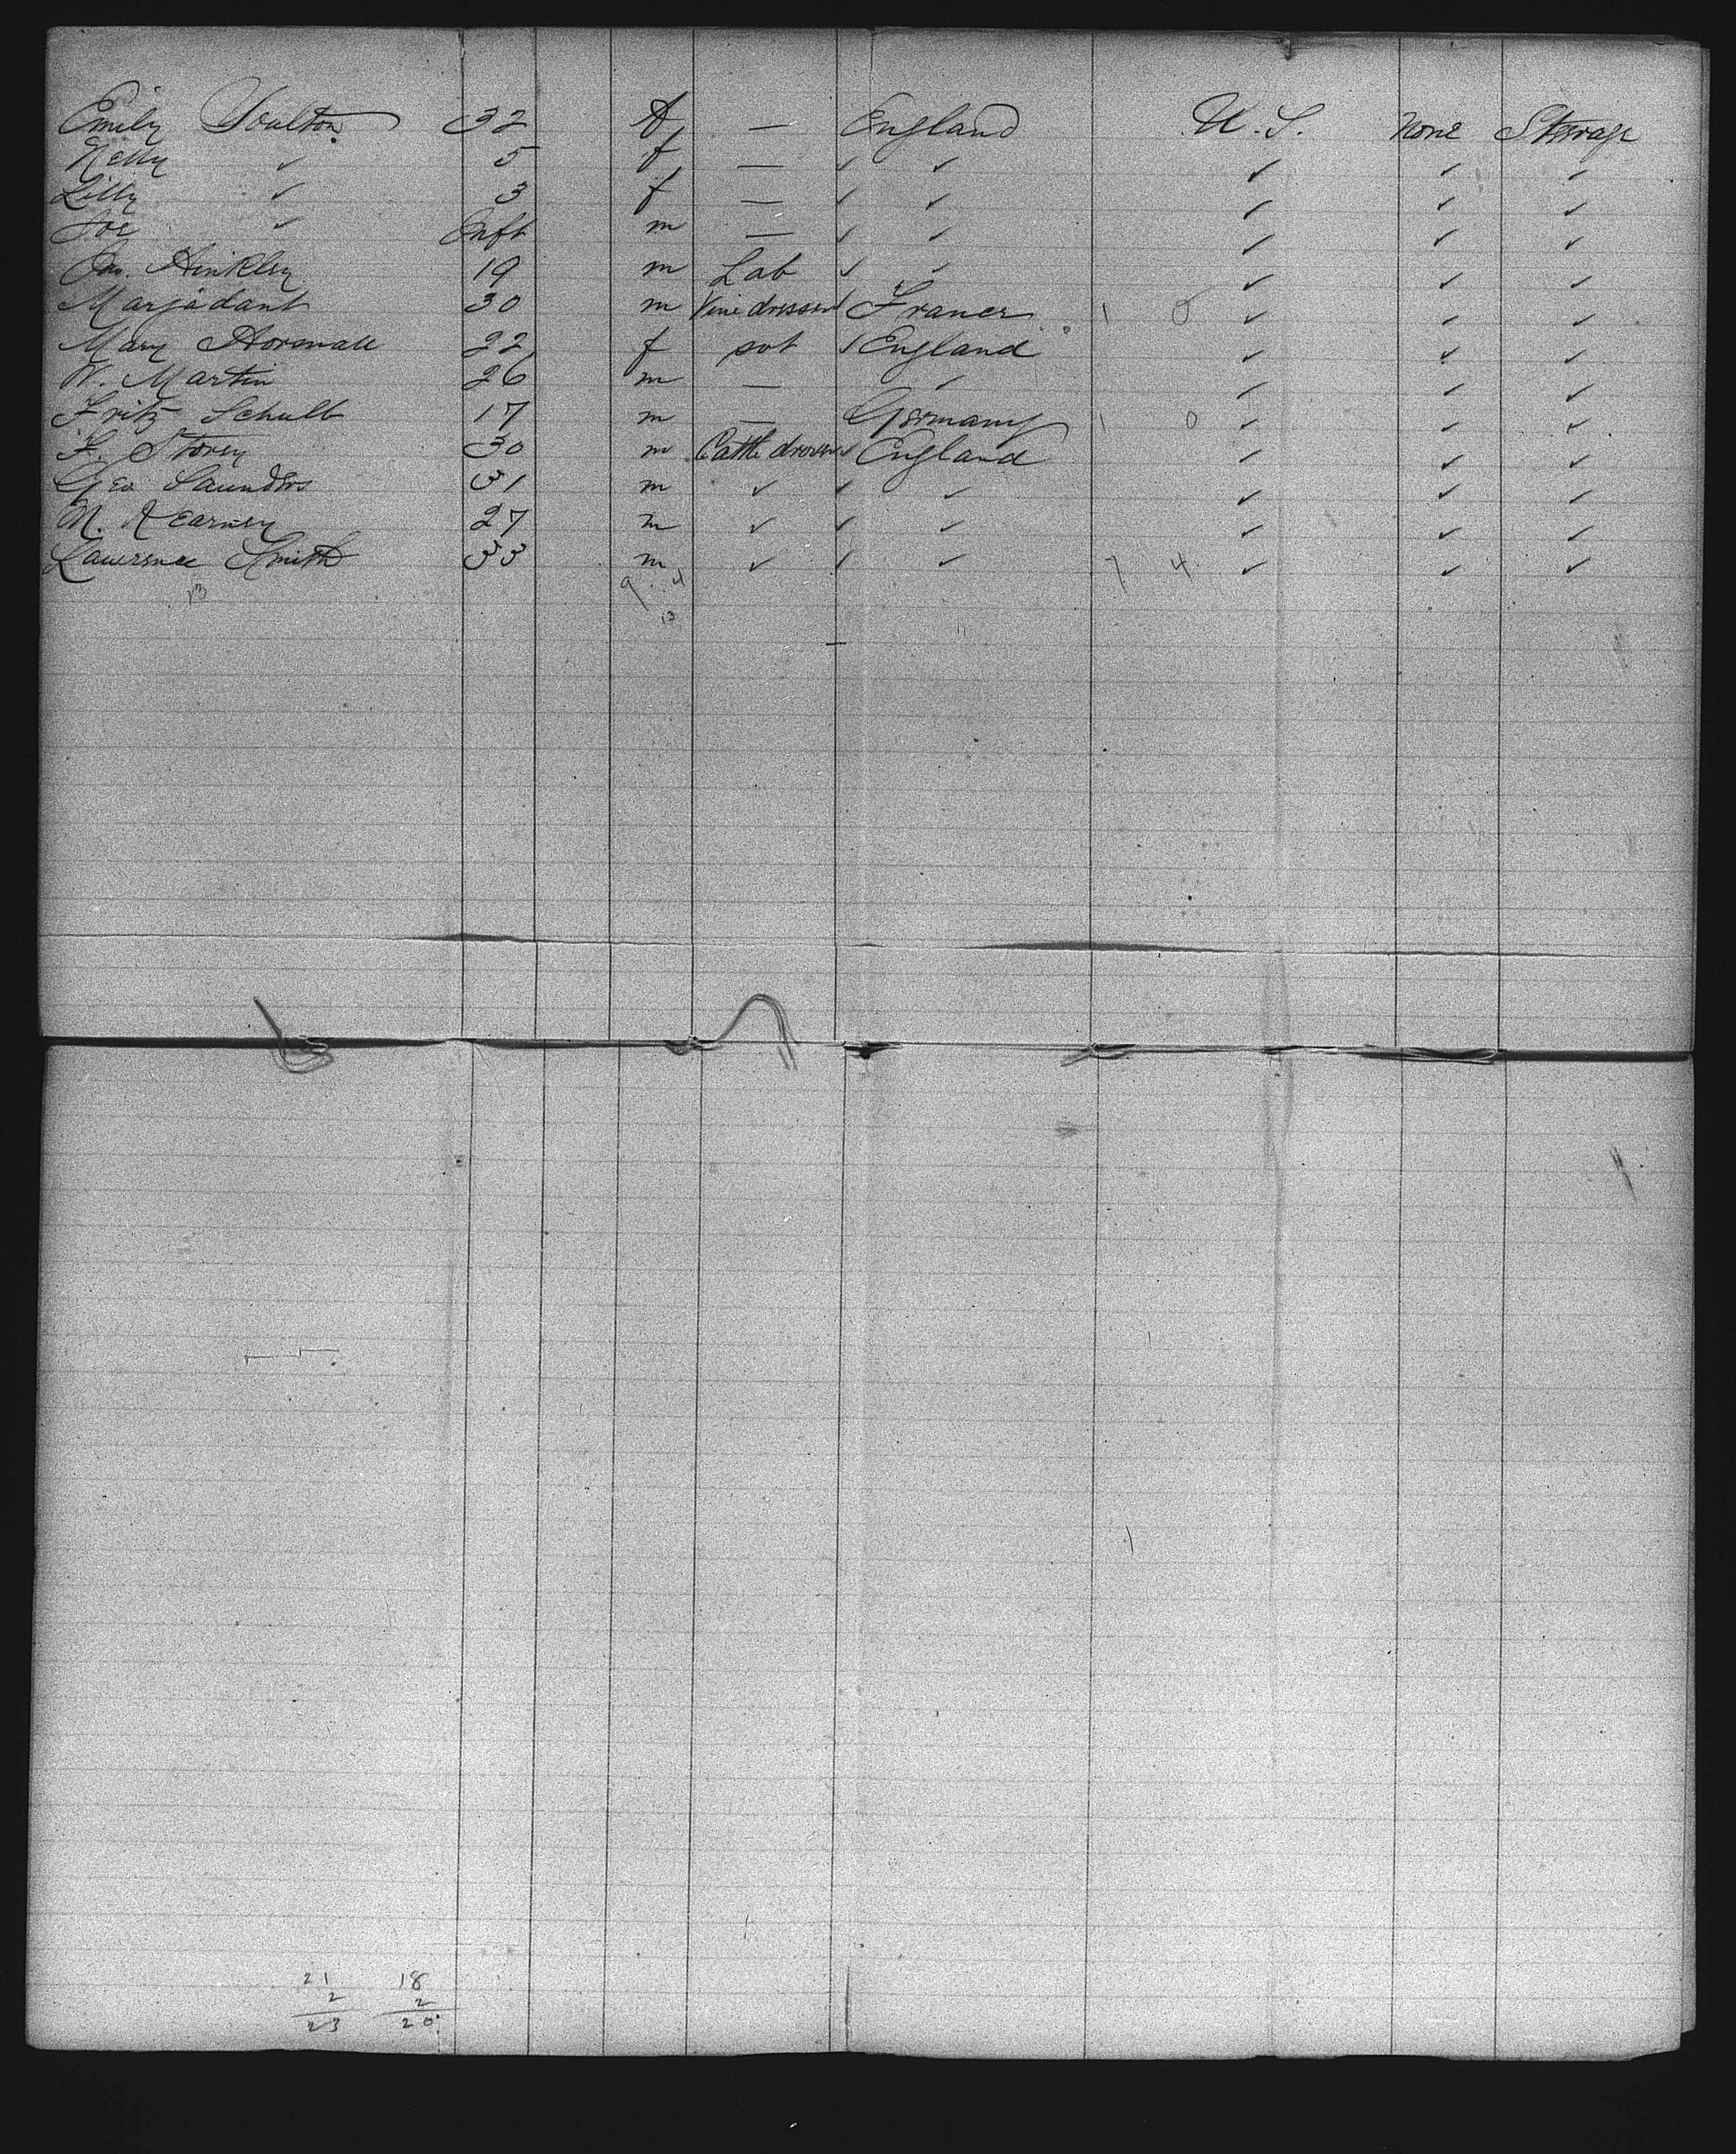 Emily Youlton 32 f — England U. S. None Steerage
Nelly ✓ 5 f — ✓ ✓ ✓ ✓ ✓
Lilly ✓ 3 f — ✓ ✓ ✓ ✓ ✓
Joe ✓ Inft m — ✓ ✓ ✓ ✓ ✓
Hinkley 19 m Lab ✓ ✓ ✓ ✓ ✓
Marjadant 30 m Vine dresser France 1 0 ✓ ✓ ✓
Mary Horsnall 22 f svt ✓ England ✓ ✓ ✓
W. Martin 26 m — ✓ ✓ ✓ ✓
Fritz Schult 17 m — Germany 1 0 ✓ ✓ ✓
F. Storey 30 m Cattle drover ✓ England ✓ ✓ ✓
Geo Saunders 31 m ✓ ✓ ✓ ✓ ✓ ✓
M. Kearney 27 m ✓ ✓ ✓ ✓ ✓ ✓
Lawrence Smith 33 m ✓ ✓ ✓ 7 4 ✓ ✓ ✓
13 9 4
13 11
21 18
2 2
23 20